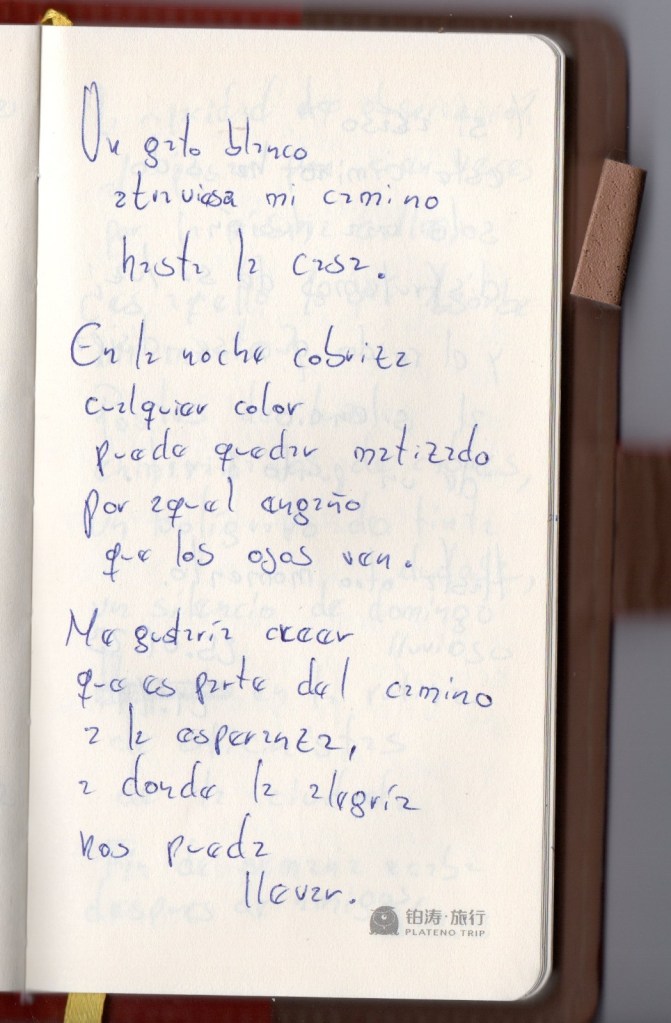 Un gato blanco
atraviesa mi camino
hasta la casa.
En la noche cobriza
cualquier color
puede quedar matizado
por aquel engaño
que los ojos ven.
Me gustaría creer
que es parte del camino
a la esperanza,
a donde la alegría
nos pueda
llevar.
铂涛·旅行
PLATENO TRIP